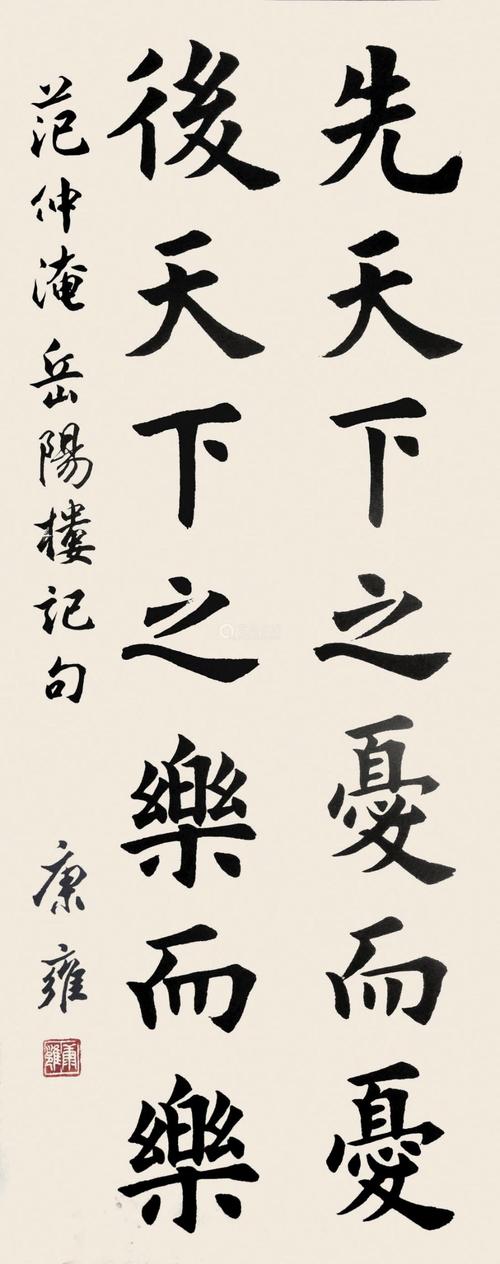 先天下之憂而憂
後天下之樂而樂
范仲淹岳陽樓記句
康雍
康雍